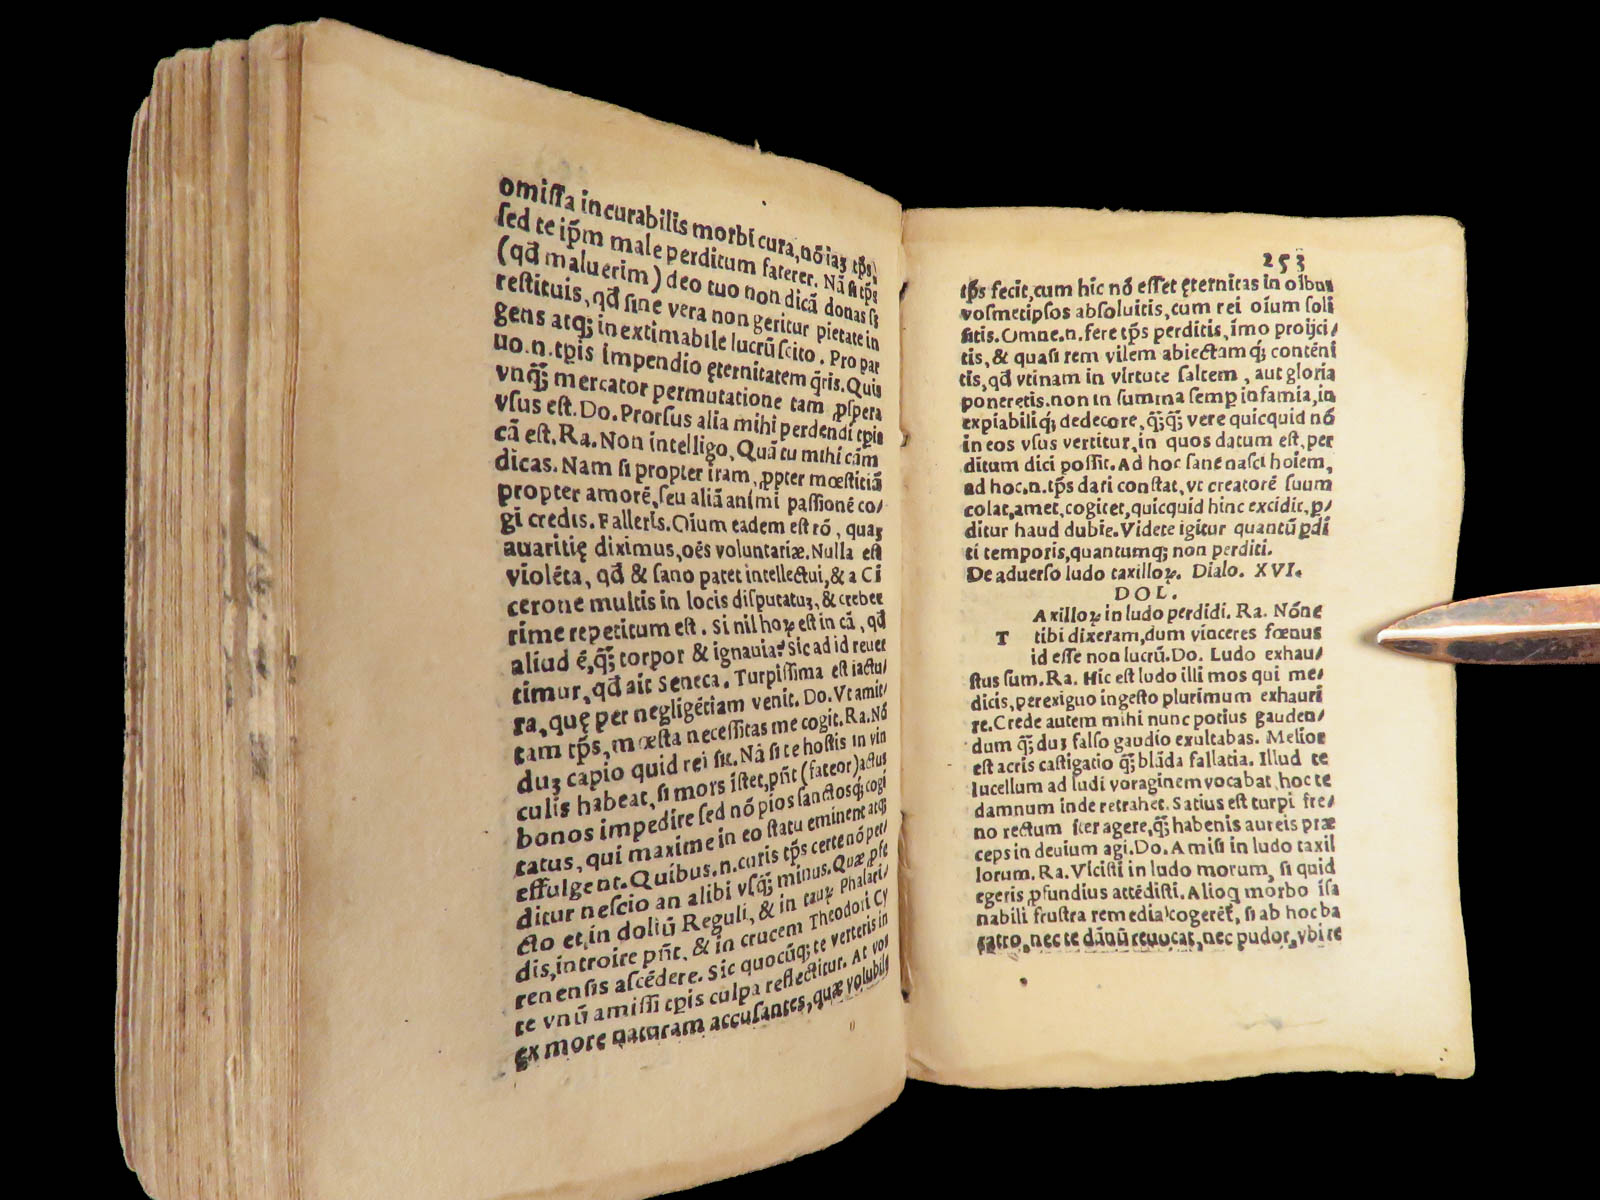 omissa incurabilis morbi cura, nõ iaꝫ tp̃s,
sed te ip̃m male perditum faterer. Nã si tp̃s
(qđ maluerim) deo tuo non dicã donas sꝫ
restituis, qđ sine vera non geritur pietate in
gens atqꝫ inextimabile lucrũ scito. Pro par
uo.n.tp̃is impendio ęternitatem q̃ris. Quis
vnq̃ꝫ mercator permutatione tam ꝓspera
vsus est. Do. Prorsus alia mihi perdendi tp̃is
cã est. Ra. Non intelligo, Quã tu mihi cãm
dicas. Nam si propter iram, ꝓpter mœstitiã
propter amorẽ, seu aliã animi passionẽ co/
gi credis. Falleris. Oium eadem est rõ, quaꝫ
auaritię diximus, oẽs voluntariæ. Nulla est
violẽta, qđ & sano patet intellectui, & a Ci
cerone multis in locis disputatuꝫ, & creber
rime repetitum est. Si nil hoꝝ est in cã, qđ
aliud ẽ, q̃ꝫ torpor & ignauia? Sic ad id reuer
timur, qđ ait Seneca. Turpissima est iactu/
ra, quę per negligẽtiam venit. Do. Vt amit/
tam tp̃s, mœsta necessitas me cogit. Ra. Nõ
duꝫ capio quid rei sit. Nã si te hostis in vin
culis habeat, si mors ĩstet, pñt (fateor) actus
bonos impedire sed nõ pios sanctosqꝫ cogi
tatus, qui maxime in eo statu eminent atqꝫ
effulgent. Quibus.n.curis tp̃s certe nõ per/
ditur nescio an alibi vsq̃ꝫ minus. Quæ ꝓfe
cto et in doliũ Reguli, & in tauꝝ Phalari/
dis, introire pñt, & in crucem Theodori Cy
renensis ascẽdere. Sic quocũqꝫ te verteris in
te vnũ amissi tp̃is culpa reflectitur. At vos
ex more naturam accusantes, quæ volubile
253
tp̃s fecit, cum hic nõ esset ęternitas in oĩbus
vosmetipsos absoluitis, cum rei oĩum soli
sitis. Omne.n.fere tp̃s perditis, ĩmo proijci/
tis, & quasi rem vilem abiectamqꝫ contẽni
tis, qđ vtinam in virtute saltem, aut gloria
poneretis. non in summa semp infamia, in
expiabiliqꝫ dedecore, q̃ꝫq̃ꝫ vere quicquid nõ
in eos vsus vertitur, in quos datum est, per
ditum dici possit. Ad hoc sanẽ nasci hoiem,
ad hoc.n.tp̃s dari constat, vt creatorẽ suum
colat, amet, cogitet, quicquid hinc excidit, ꝑ/
ditur haud dubie. Videte igitur quantũ ꝑdi
ti temporis, quantumqꝫ non perditi.
De aduerso ludo taxilloꝝ. Dialo. XVI.
DOL.
T Axilloꝝ in ludo perdidi. Ra. Nõne
tibi dixeram, dum vinceres fœnus
id esse non lucrũ. Do. Ludo exhau/
stus sum. Ra. Hic est ludo illi mos qui me/
dicis, perexiguo ingesto plurimum exhauri
re. Crede autem mihi nunc potius gauden/
dum q̃ꝫ duꝫ falso gaudio exultabas. Melior
est acris castigatio q̃ꝫ blãda fallatia. Illud te
lucellum ad ludi voraginem vocabat, hoc te
damnum inde retrahet. Satius est turpi fre/
no rectum iter agere, q̃ꝫ habenis aureis præ
ceps in deuium agi. Do. Amisi in ludo taxil
lorum. Ra. Vicisti in ludo morum, si quid
egeris ꝓfundius attẽdisti. Alioq morbo ĩsa
nabili frustra remedia cogerẽt, si ab hoc ba
ratro, nec te dãnũ reuocat, nec pudor, vbi te